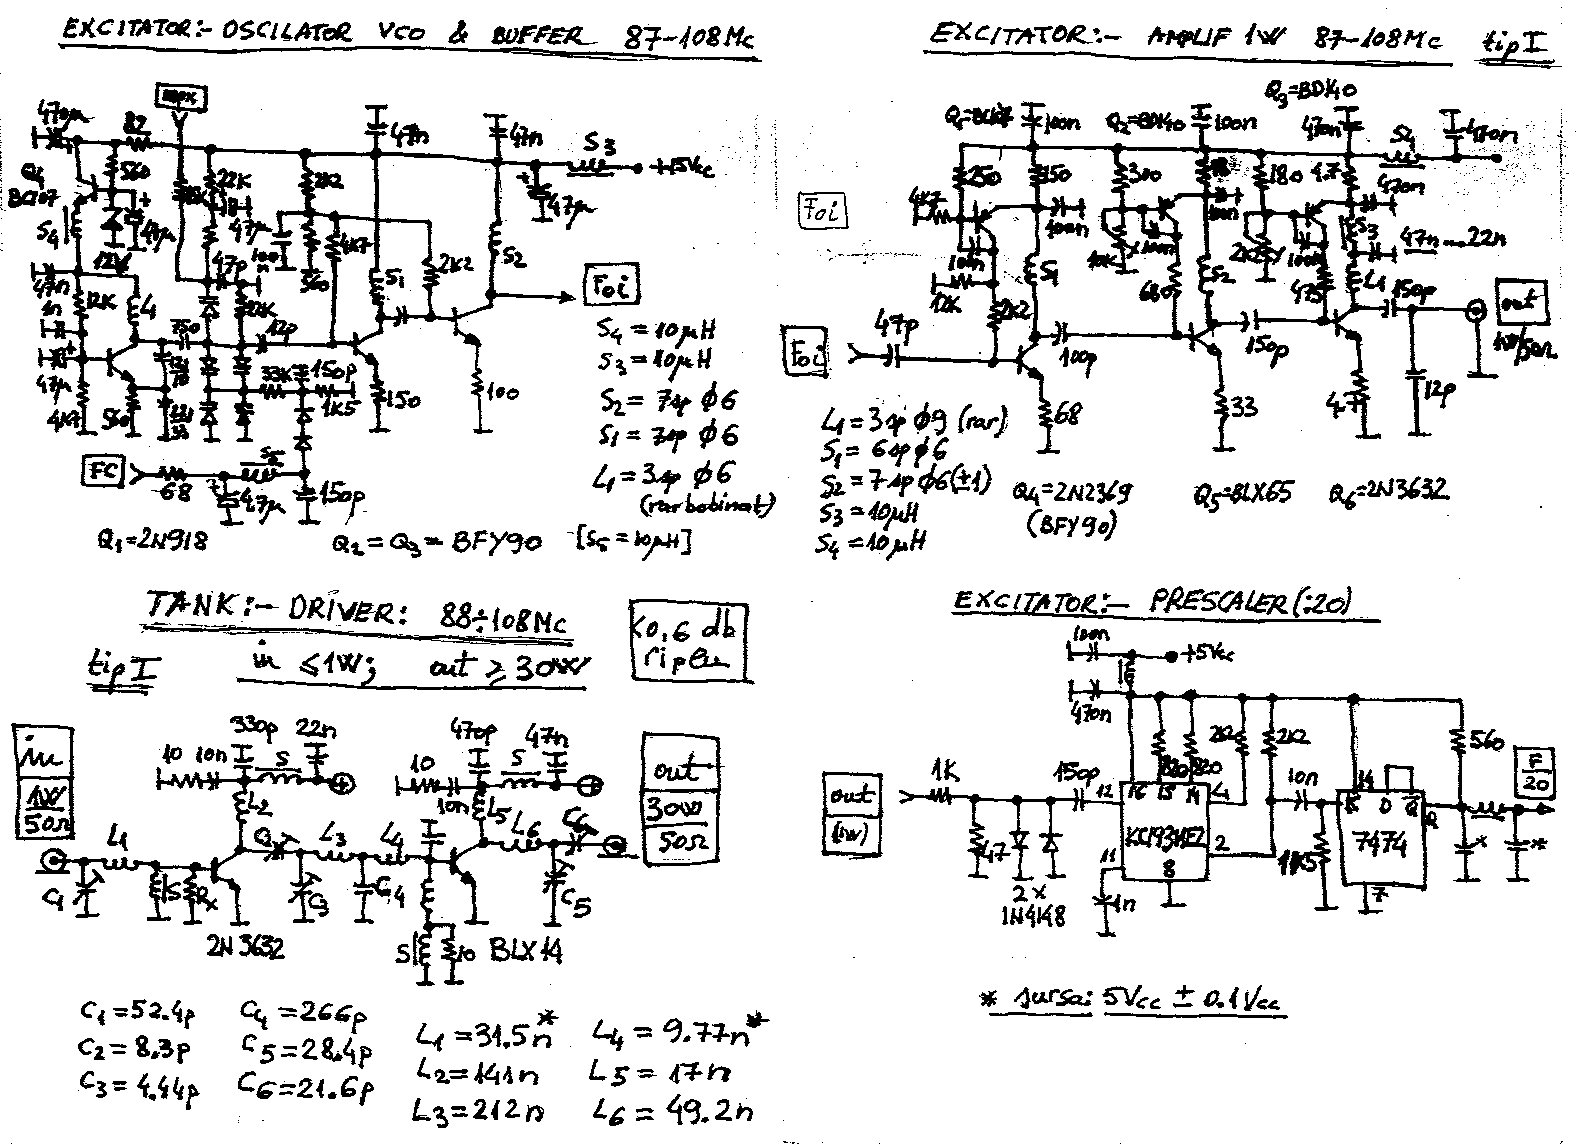 EXCITATOR:- OSCILATOR VCO & BUFFER 87-108Mc
470µ
82
47n
47n
S3
+15Vcc
560
22K
2K2
Q4
BC107
S4
47µ
47µ
47µ
12V
100n
560
4K7
S1
2K2
S2
Foi
47n
1n
12K
L1
47p
22K
12p
150
33K
150p
1K5
150
100
47µ
4K7
560
FC
68
S5
47µ
150p
S4 = 10µH
S3 = 10µH
S2 = 7sp φ6
S1 = 7sp φ6
L1 = 3sp φ6
(rar bobinat)
Q1=2N918
Q2 = Q3 = BFY90
[S5 = 10µH]
EXCITATOR:- AMPLIF 1W 87-108Mc tip I
Q3=BDX40
100n
Q2=BDX40
100n
470n
S4
470n
Foi
4K7
250
150
300
180
4.7
470n
100n
100n
100n
S3
47n...22n
12K
2K2
S1
10K
680
S2
L1
150p
out
1W/50Ω
Foi
47p
100p
150p
12p
68
33
4.7
L1 = 3sp φ9 (rar)
S1 = 6sp φ6
S2 = 7sp φ6(±1)
S3 = 10µH
S4 = 10µH
Q4=2N2369
(BFY90)
Q5=BLX65
Q6=2N3632
TANK:- DRIVER: 88÷108Mc
<0,6 db
riplu
tip I
in ≤1W; out ≥ 30W
in
1W
50Ω
330p
22n
10
10n
S
L2
470p
47n
10
10n
S
L5
out
30W
50Ω
L1
C1
S
Rx
L3
C3
L4
C4
L6
C6
C5
2N3632
S
10
BLX14
C1 =52.4p
C2 = 8.3p
C3 = 4.44p
C4 =266p
C5=28.4p
C6=21.6p
L1 =31.5n*
L2=141n
L3=212n
L4 = 9.77n*
L5 = 17n
L6 = 49.2n
EXCITATOR:- PRESCALER(:20)
100n
+5Vcc
470n
820
820
2K2
2K2
560
F
20
out
(1W)
1K
150p
12
16
15
14
1
10n
14
D
Q
7474
47
2 x
1N4148
11
8
2
1n
1K5
7
*
*
* sursa: 5Vcc ± 0.1Vcc